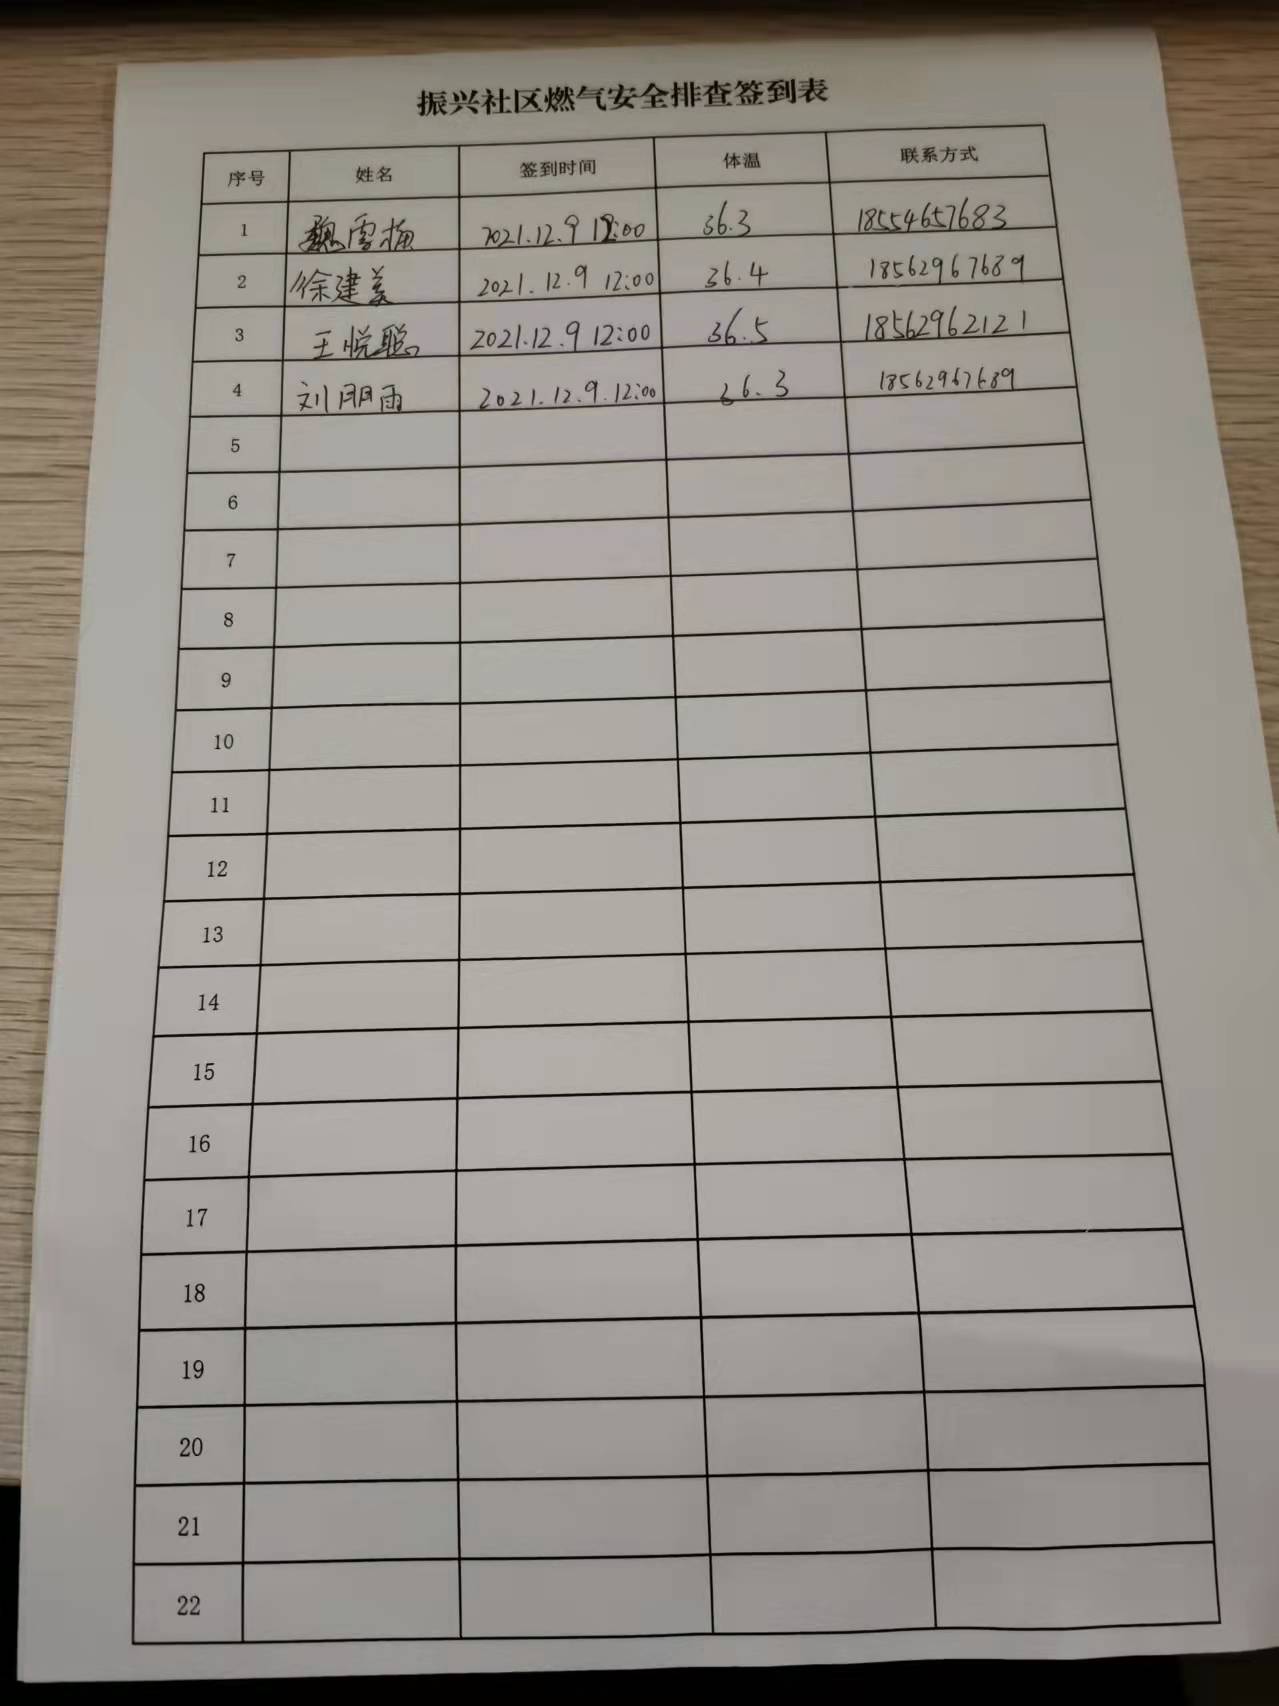 振兴社区燃气安全排查签到表
序号 姓名 签到时间 体温 联系方式
1 魏雪梅 2021.12.9 12:00 36.3 18554657683
2 徐建美 2021.12.9 12:00 36.4 18562967689
3 王悦聪 2021.12.9 12:00 36.5 18562962121
4 刘朋雨 2021.12.9.12:00 36.3 18562967689
5
6
7
8
9
10
11
12
13
14
15
16
17
18
19
20
21
22